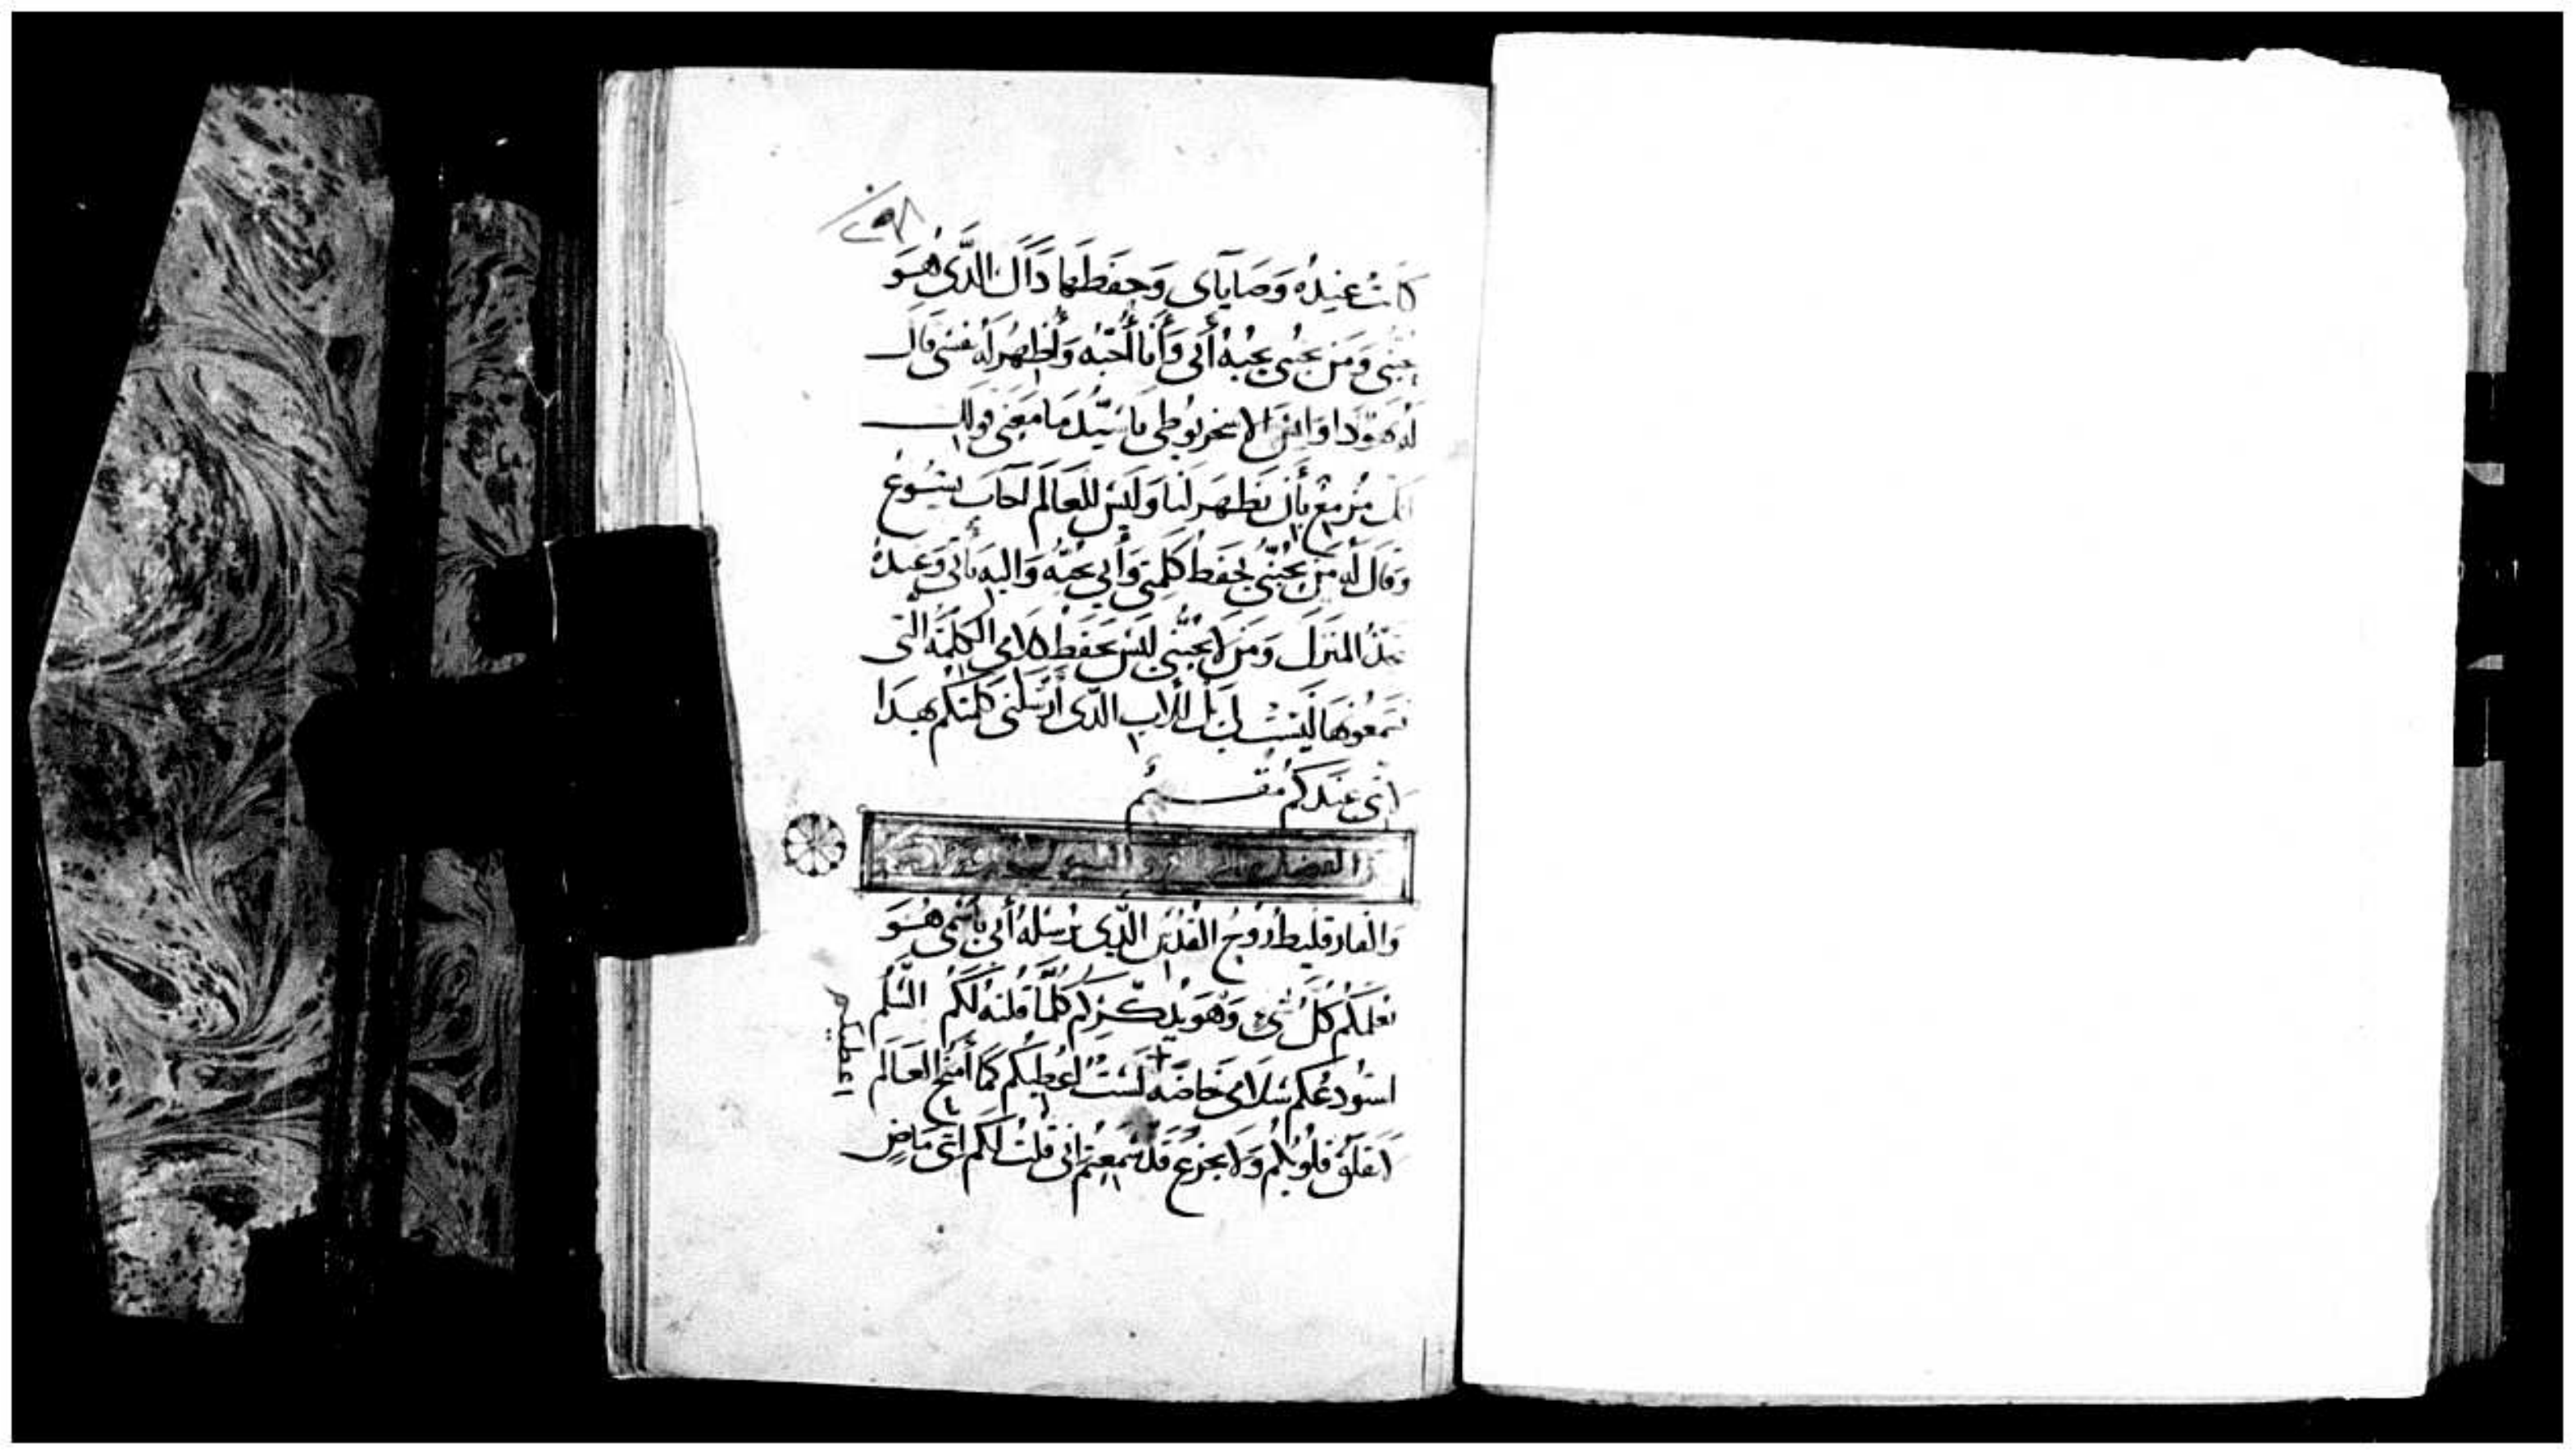 كانت عنده وَصَايَاى وَحفَظَها دَاك الدَّى هُوَ
يحبّنى وَمَن يحبنى يحبُهُ أَبى وَأَنا أُحبّه وَأُظهرُ لَهُ نفسى قال
لَه يَهوّدا وَليسَ الاسخريوطى يا سَيّد مَا مَعنى قولك
انك مُزمعُ بأَن تظهَر لنا وَليسَ للعالم اجَابَ يسُوع
وَقال لَه مَن يحبّنى يحفَط كلمتى وَأَبي يحبّه وَاليه نأتى وَعندهُ
نتخذُ المنزلَ وَمَن لَا يحبّنى ليسَ يحفط كلامى الكلمَة التى
تسمعُونهَا ليسَت لى بَل للاب الدّى أَرسَلنى كلمتكم بهدَا
لانى عندَكم مُقيم
الفصل
وَالفارقليط رُوحُ القدُس الدَّى يُرسلهُ أَبى باسمى هُوَ
يُعلمكم كلّ شَىء وَهوَ يدكّركم كلَّمَا قلته لكم السَّلم
استَودعُكم سَلامى خاصّه لَستُ اعطيكم كمَا أَمنح العَالَم
اعطيكم
لا تقلق قلُوبُكم وَلا تجزع قد سَمعتم انى قلتُ لكم انى مَاضٍ